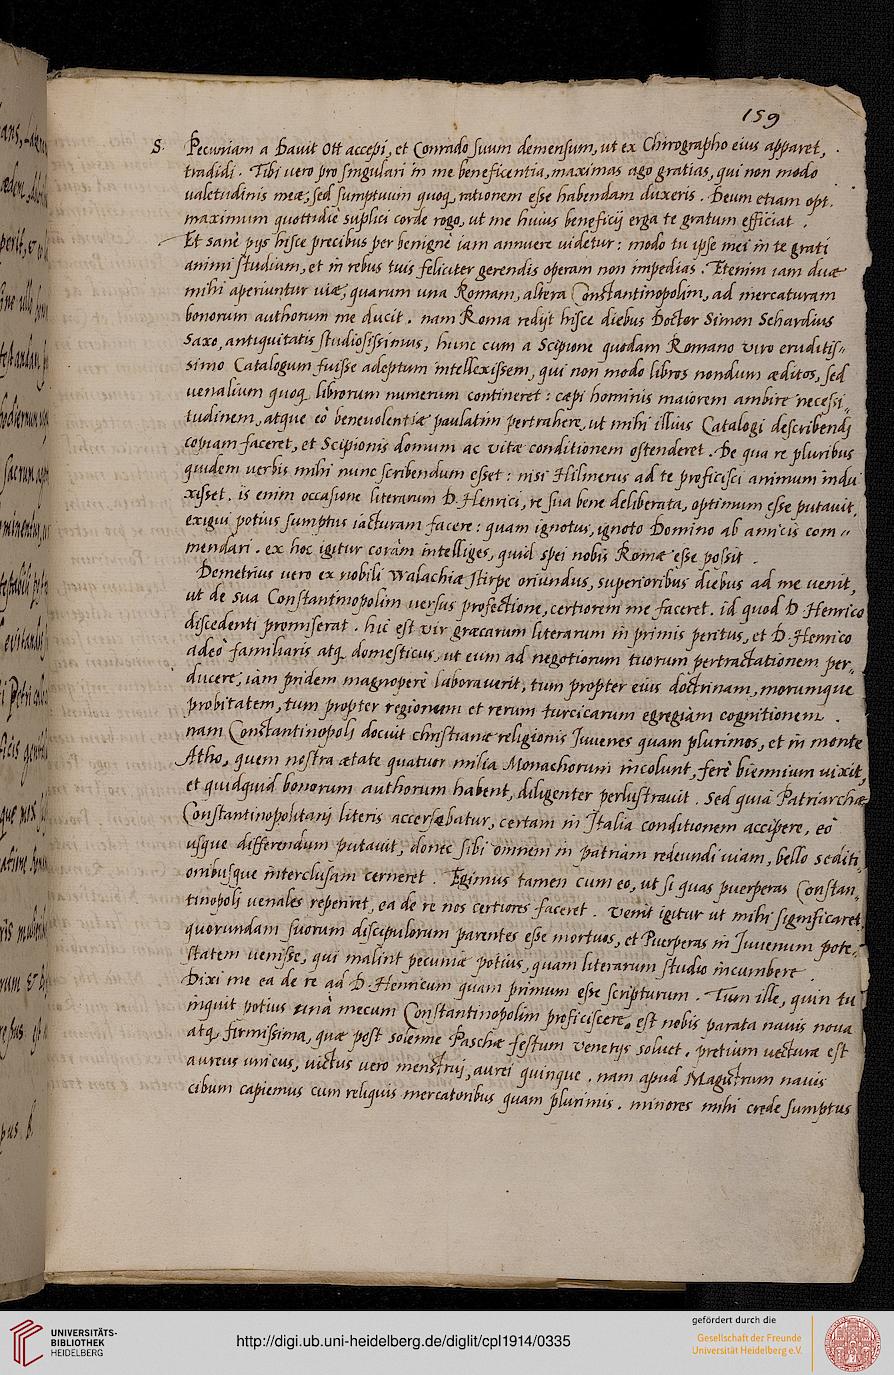 159
S. Pecuniam a Davit Ott accepi, et Conrado suum demensum, ut ex Chirographo eius apparet,
tradidi. Tibi uero pro singulari in me beneficentia, maximas ago gratias, qui non modo
ualetudinis meæ, sed sumptuum quoq, rationem esse habendam duxeris. Deum etiam opt.
maximum quottidiè suplici corde rogo, ut me huius beneficij erga te gratum efficiat.
Et sanè pijs hisce precibus per benignè iam annuere uidetur: modo tu ipse mei in te grati
animi studium, et in rebus tuis feliciter gerendis operam non impedias. Etenim iam duæ
mihi aperiuntur uiæ, quarum una Romam, altera Constantinopolim, ad mercaturam
bonorum authorum me ducit. nam Roma redijt hisce diebus Doctor Simon Schardius
Saxo, antiquitatis studiosissimus, hunc cum a Scipione quodam Romano viro eruditis=
simo Catalogum fuisse adeptum intellexissem, qui non modo libros nondum æditos, sed
uenalium quoq librorum numerum contineret: cæpi hominis maiorem ambire necessi=
tudinem, atque eò beneuolentiæ paulatim pertrahere, ut mihi illius Catalogi describendj
copiam faceret, et Scipionis domum ac vitæ conditionem ostenderet. De qua re pluribus
quidem uerbis mihi nunc scribendum esset: nisi Hilmerus ad te proficisci animum indu
xisset. is enim occasione literarum D. Henrici, re sua bene deliberata, optimum esse putauit,
exigui potius sumptus iacturam facere: quam ignotus, ignoto Domino ab amicis com=
mendari. ex hoc igitur coràm intelliges, quid spei nobis Romæ esse possit.
Demetrius uero ex nobili Walachiæ stirpe oriundus, superioribus diebus ad me uenit,
ut de sua Constantinopolim versus profectione, certiorem me faceret. id quod D Henrico
discedenti promiserat. hic est vir græcarum literarum in primis peritus, et D. Henrico
adeò familiaris atq domesticus, ut eum ad negotiorum tuorum pertractationem per=
ducere, iàm pridem magnoperè laborauerit, tum propter eius doctrinam, morumque
probitatem, tum propter regionum et rerum turcicarum egregiàm cognitionem.
nam Constantinopolj docuit christianæ religionis Juuenes quam plurimos, et in monte
Atho, quem nostra ætate quatuor milia Monachorum incolunt, ferè biennium uixit,
et quidquid bonorum authorum habent, diligenter perlustrauit. Sed quia Patriarchæ
Constantinopolitanj literis accersebatur, certam in Italia conditionem accipere, eò
usque differendum putauit, donec sibi omnem in patriam redeundi uiam, bello seditj=
onibusque interclusam cerneret. Egimus tamen cum eo, ut si quas puerperas Constan=
tinopolj uenales reperiret, ea de re nos certiores faceret. venit igitur ut mihi significaret,
quorundam suorum discipulorum parentes esse mortuos, et Puerperas in Juuenum pote=
statem uenisse, qui malint pecuniæ potius, quam literarum studio incumbere.
Dixi me ea de re ad D Henricum quam primum esse scripturum. Tum ille, quin tu
inquit potius unà mecum Constantinopolim proficiscere. est nobis parata nauis noua
atq firmissima, quæ post solenne Paschæ festum Venetijs soluet. pretium uecturæ est
aureus unicus, uictus vero menstruj, aurei quinque. nam apud Magistrum nauis
cibum capiemus cum reliquis mercatoribus quam plurimis. minores mihi crede sumptus
UNIVERSITÄTS-
BIBLIOTHEK
HEIDELBERG
http://digi.ub.uni-heidelberg.de/diglit/cpl1914/0335
gefördert durch die
Gesellschaft der Freunde
Universität Heidelberg e.V.